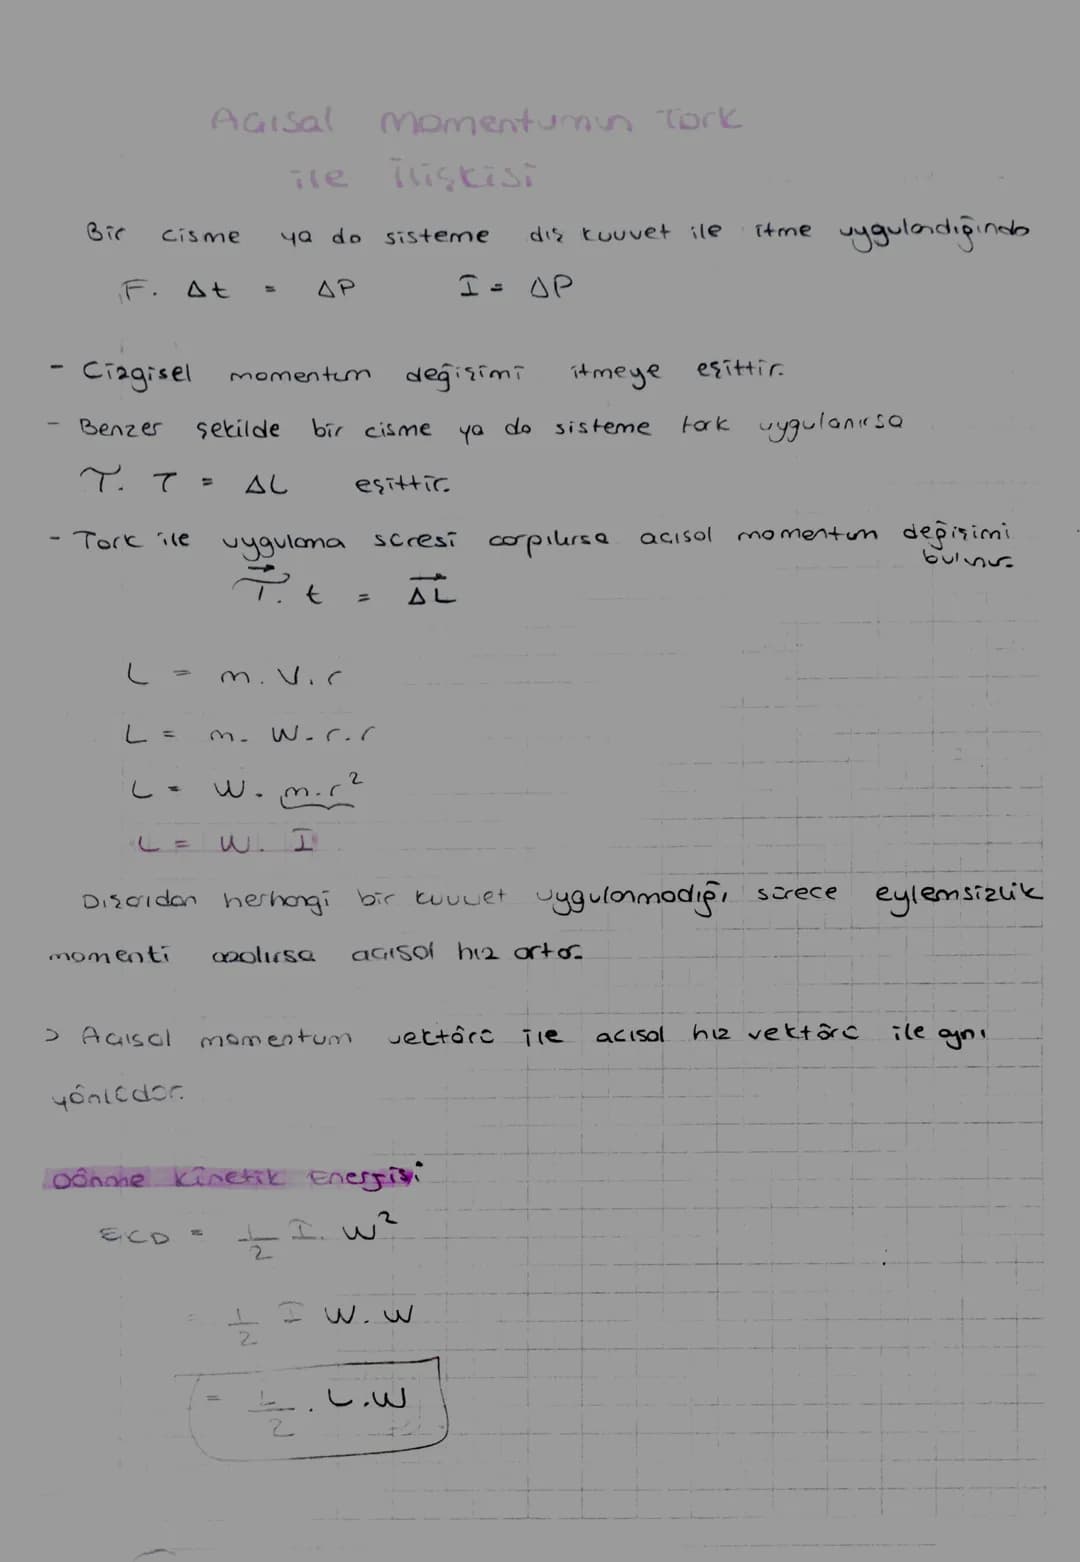 Açısal momentumun Tork
ile ilişkisi
Bir cisme ya da sisteme dış kuvvet ile itme uygulandığında
F. Δt = ΔP I = ΔP
- Çizgisel momentum değişimi itmeye eşittir.
- Benzer şekilde bir cisme ya da sisteme tork uygulanırsa
τ. T = ΔL eşittir.
- Tork ile uygulama süresi çarpılırsa açısal momentum değişimi
bulunur.
τ. t = ΔL
L = m. V. r
L = m. W. r. r
L = W. m.r²
L = W. I
Dışarıdan herhangi bir kuvvet uygulanmadığı sürece eylemsizlik
momenti azalırsa açısal hız artar.
> Açısal momentum vektörü ile açısal hız vektörü ile aynı
yönlüdür.
Dönme Kinetik Enerjisi
ECD = 1/2 I. W²
= 1/2 I W. W
= 1/2 . L.W